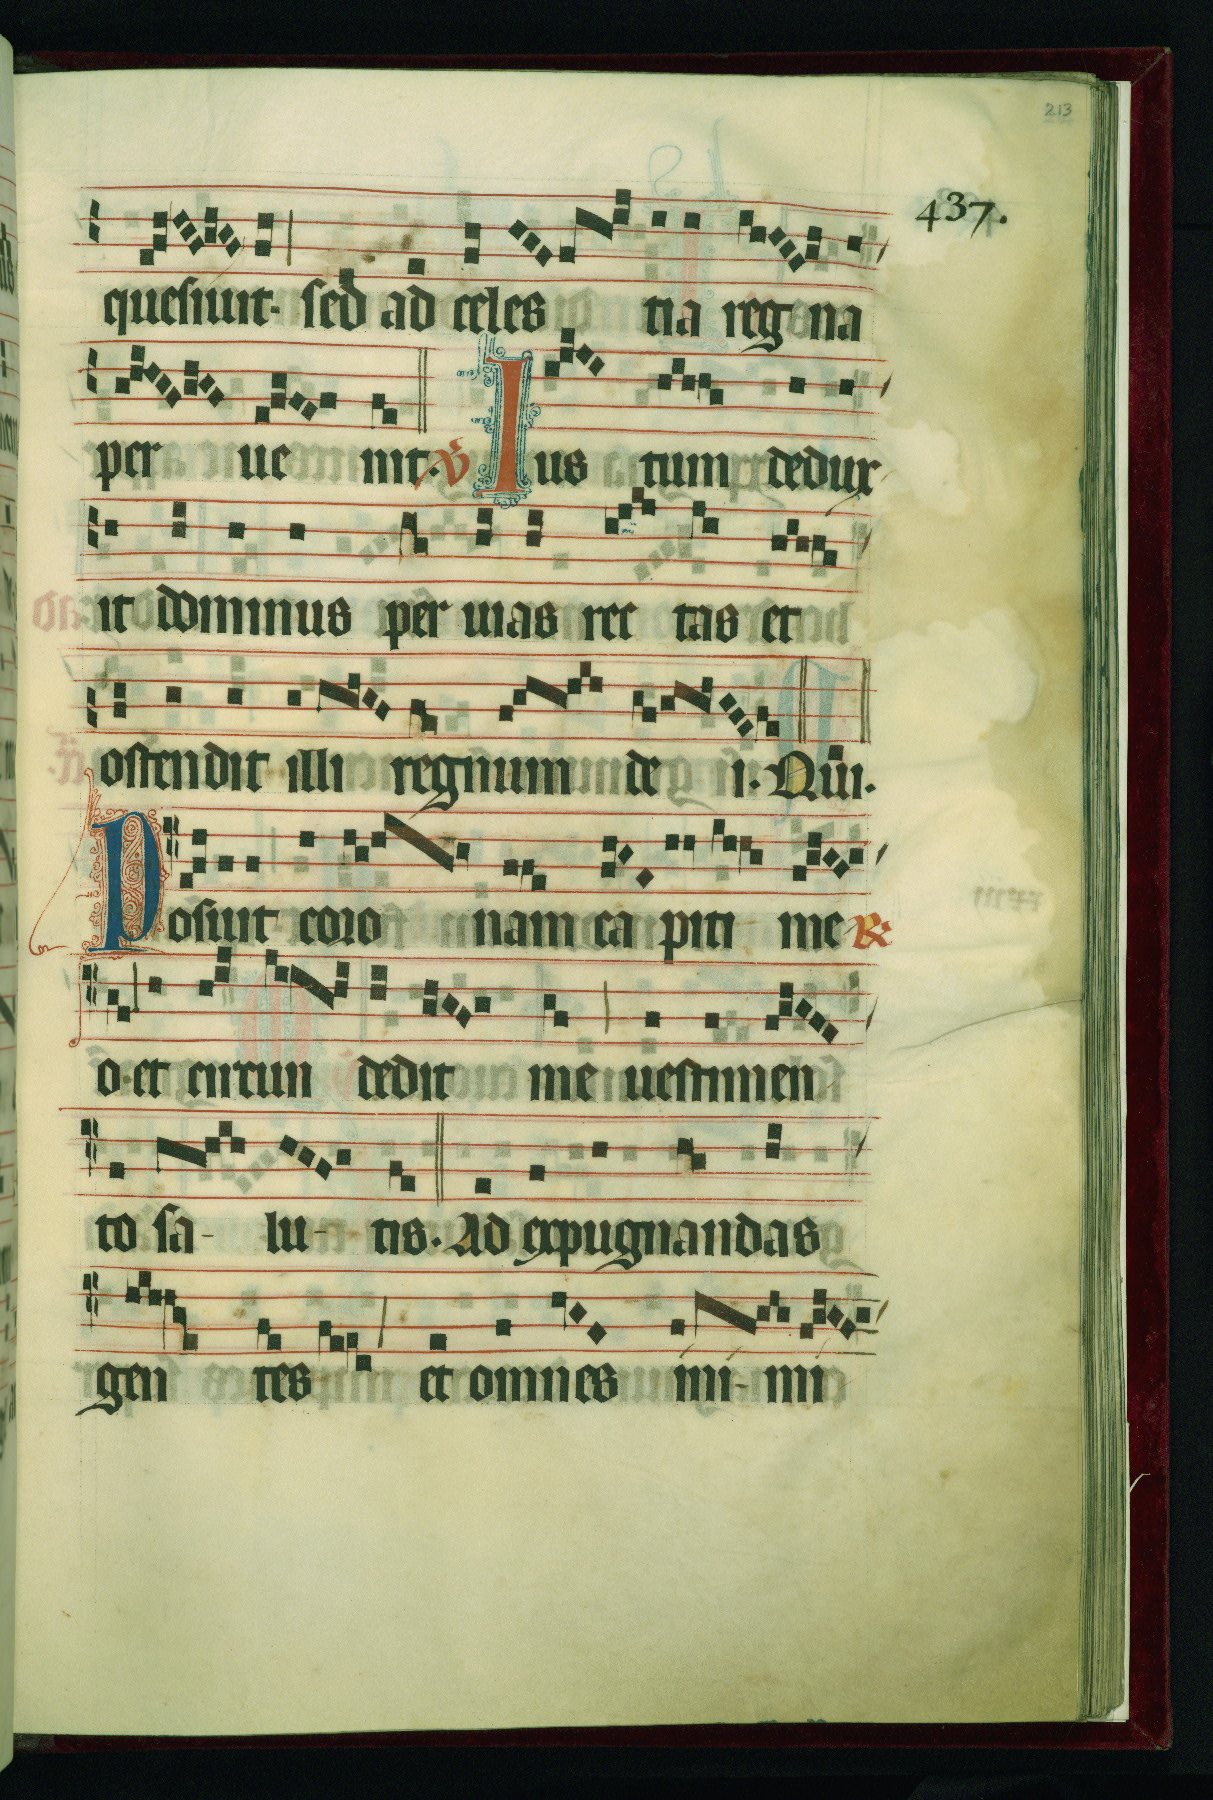 213
437.
quesiuit· sed ad celes tia reg na
per ue nit. v̄ Ius tum dedux
it dominus per uias rec tas et
ostendit illi regnum de i· Qui.
Posuit coro nam ca piti me R
o·et circun dedit me uestimen
to sa- lu- tis· Ad expugnandas
gen tes et omnes ini- mi